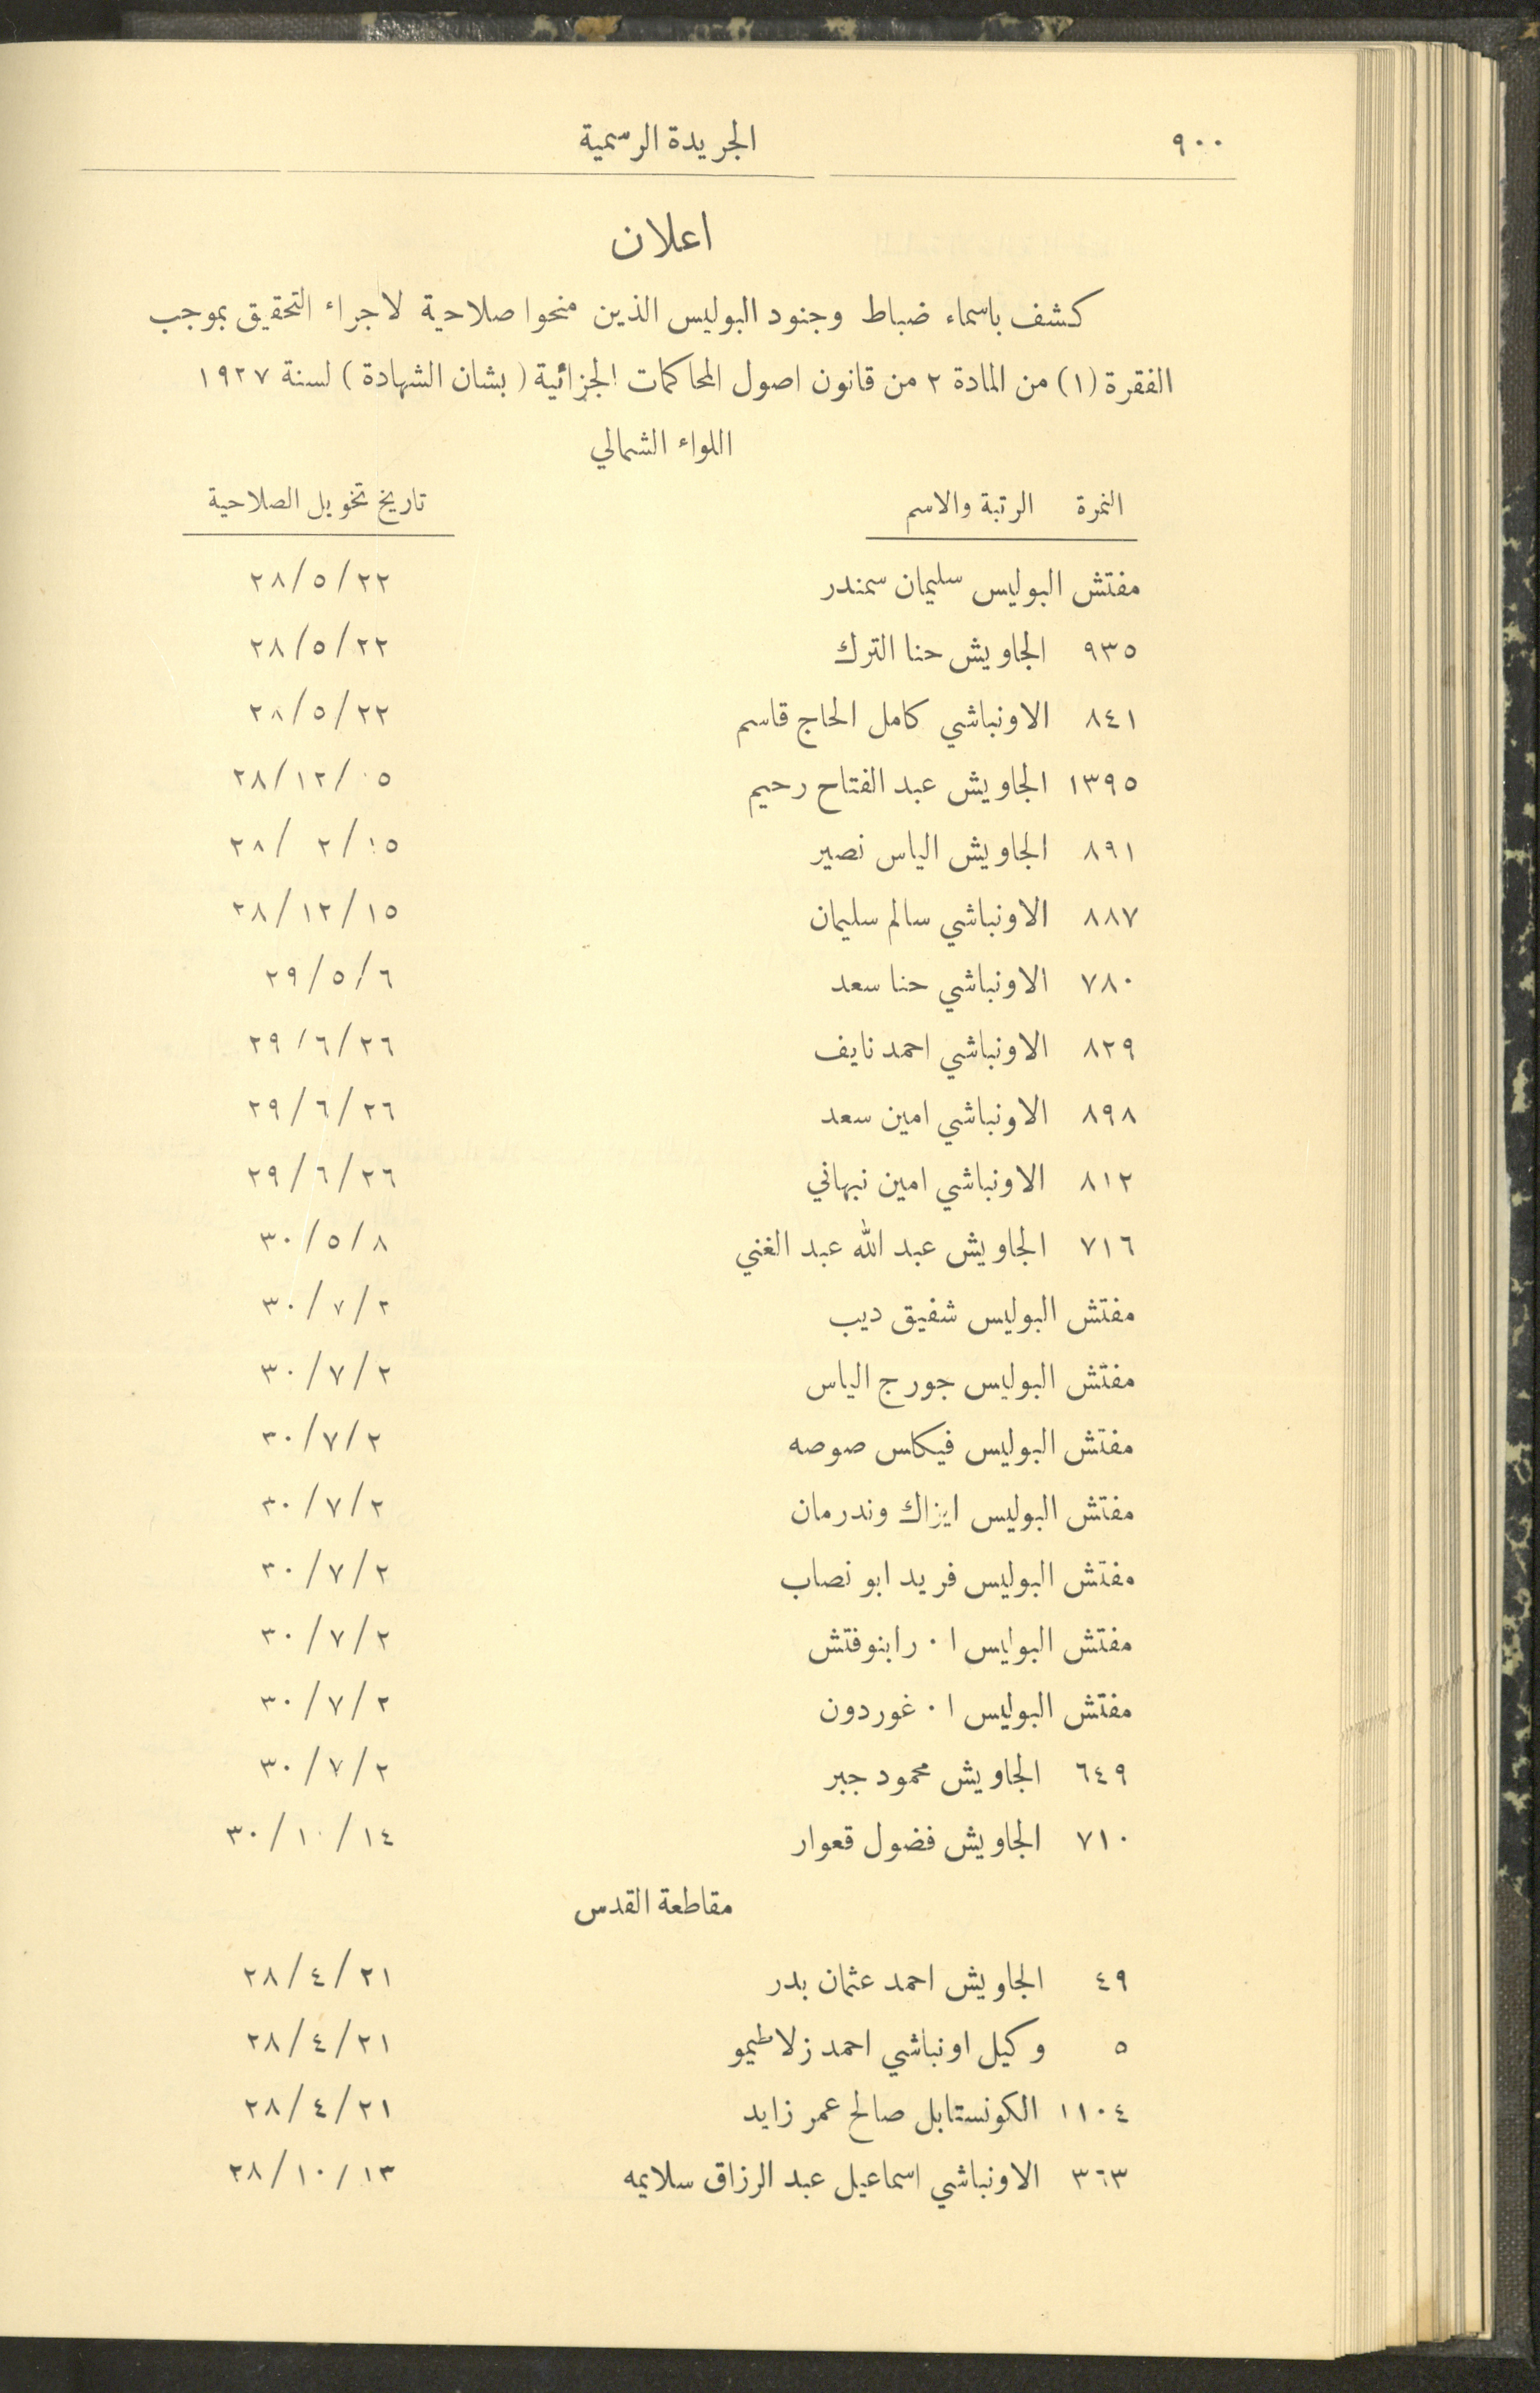 ٩٠٠ الجريدة الرسمية
اعلان
كشف باسماء ضباط وجنود البوليس الذين منحوا صلاحية لاجراء التحقيق بموجب
الفقرة (١) من المادة ٢ من قانون اصول المحاكمات الجزائية (بشان الشهادة) لسنة ١٩٢٧
اللواء الشمالي
النمرة الرتبة والاسم تاريخ تخويل الصلاحية
مفتش البوليس سليمان سمندر ٢٨/٥/٢٢
٩٣٥ الجاويش حنا الترك ٢٨/٥/٢٢
٨٤١ الاونباشي كامل الحاج قاسم ٢٨/٥/٢٢
١٣٩٥ الجاويش عبد الفتاح رحيم ٢٨/١٢/١٥
٨٩١ الجاويش الياس نصير ٢٨/ ٢/١٥
٨٨٧ الاونباشي سالم سليمان ٢٨/١٢/١٥
٧٨٠ الاونباشي حنا سعد ٢٩/٥/٦
٨٢٩ الاونباشي احمد نايف ٢٩/٦/٢٦
٨٩٨ الاونباشي امين سعد ٢٩/٦/٢٦
٨١٢ الاونباشي امين نبهاني ٢٩/٦/٢٦
٧١٦ الجاويش عبد الله عبد الغني ٣٠/٥/٨
مفتش البوليس شفيق ديب ٣٠/٧/٢
مفتش البوليس جورج الياس ٣٠/٧/٢
مفتش البوليس فيكاس صوصه ٣٠/٧/٢
مفتش البوليس ايزاك وندرمان ٣٠/٧/٢
مفتش البوليس فريد ابو نصاب ٣٠/٧/٢
مفتش البوليس ا٠ رابنوفتش ٣٠/٧/٢
مفتش البوليس ا٠ غوردون ٣٠/٧/٢
٦٤٩ الجاويش محمود جبر ٣٠/٧/٢
٧١٠ الجاويش فضول قعوار ٣٠/١٠/١٤
مقاطعة القدس
٤٩ الجاويش احمد عثمان بدر ٢٨/٤/٢١
٥ وكيل اونباشي احمد زلاطيمو ٢٨/٤/٢١
١١٠٤ الكونستابل صالح عمر زايد ٢٨/٤/٢١
٣٦٣ الاونباشي اسماعيل عبد الرزاق سلايمه ٢٨/١٠/١٣